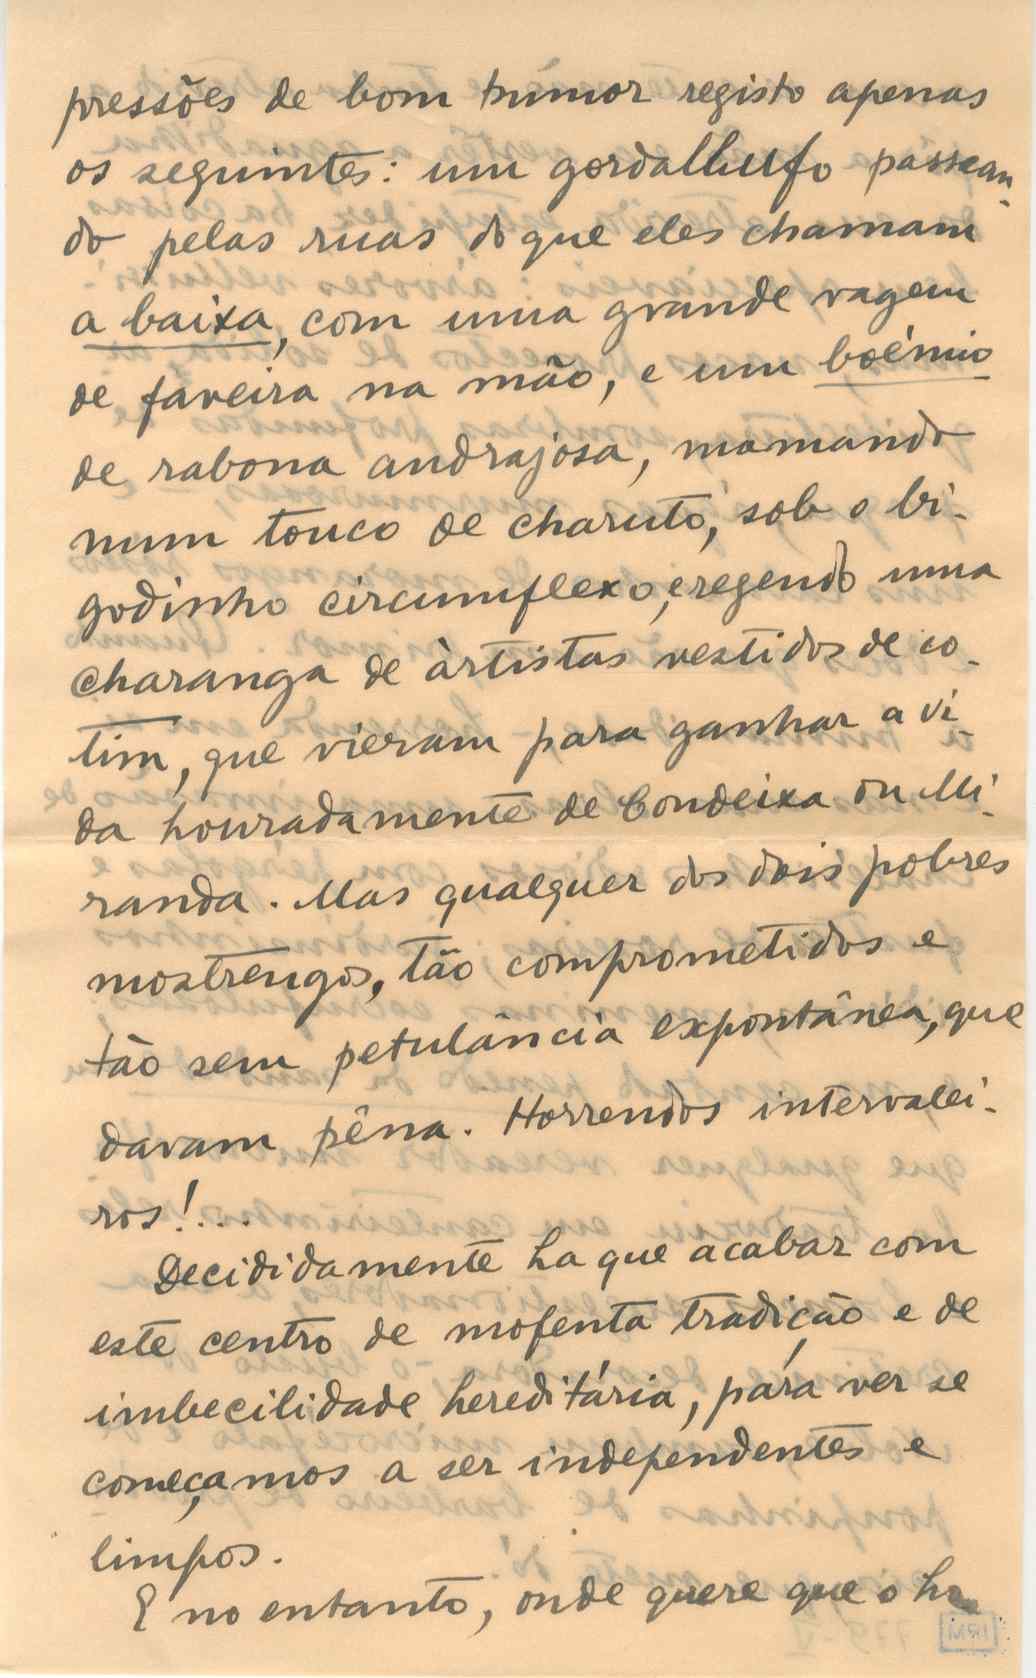 pressões de bom húmor registo apenas
os seguintes: um gordalhufo passean-
do pelas ruas do que eles chamam
a baixa, com uma grande vagem
de faveira na mão, e um boémio
de rabona andrajosa, mamando
num touco de charuto, sob o bi-
godinho circumflexo, e regendo uma
charanga de àrtistas vestidos de co-
tim, que vieram para ganhar a vi-
da houradamente de Condeixa ou Mi-
randa. Mas qualquer dos dois pobres
mostrengos, tão comprometidos e
tão sem petulância expontânea, que
davam pêna. Horrendos intervalei-
ros!...
Decididamente ha que acabar com
este centro de mofenta tradição e de
imbecilidade hereditária, pára ver se
começamos a ser independentes e
limpos.
E no entanto, onde quere que o ho